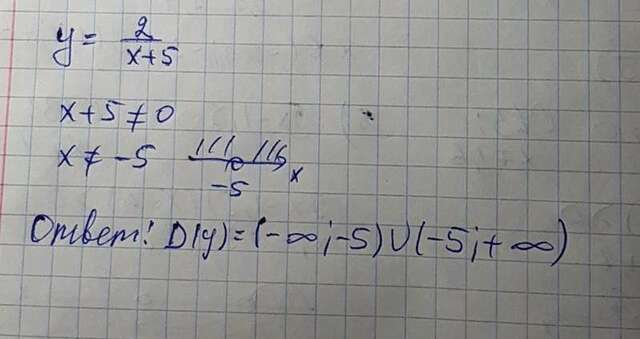 y = 2/(x+5)
x+5≠0
x≠-5
-5 x
Ответ: D(y)=(-∞;-5)∪(-5;+∞)